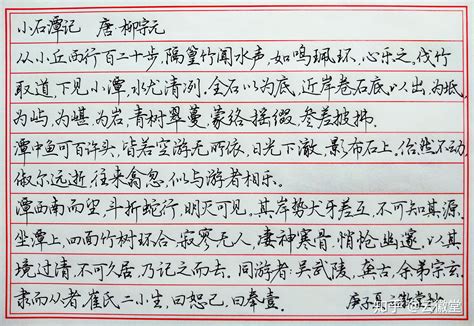 小石潭记 唐·柳宗元
从小丘西行百二十步，隔篁竹闻水声，如鸣珮环，心乐之，伐竹
取道，下见小潭，水尤清冽。全石以为底，近岸卷石底以出，为坻、
为屿、为嵁、为岩，青树翠蔓，蒙络摇缀，参差披拂。
潭中鱼可百许头，皆若空游无所依，日光下澈，影布石上。佁然不动，
俶尔远逝，往来翕忽，似与游者相乐。
潭西南而望，斗折蛇行，明灭可见。其岸势犬牙差互，不可知其源。
坐潭上，四面竹树环合，寂寥无人，凄神寒骨，悄怆幽邃。以其
境过清，不可久居，乃记之而去。同游者：吴武陵、龚古、余弟宗玄。
隶而从者，崔氏二小生：曰恕己，曰奉壹。
知乎